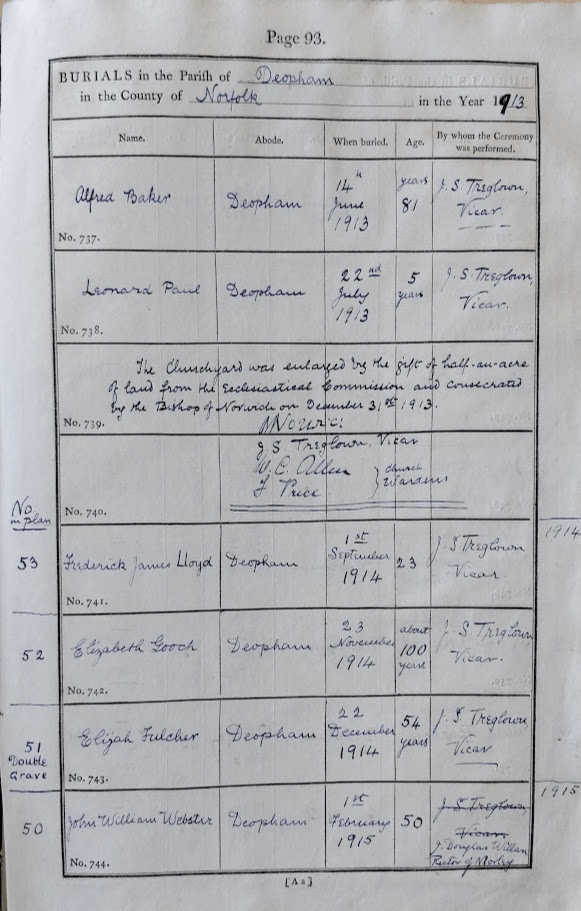 Page 93.
BURIALS in the Parish of Deopham
in the County of Norfolk in the Year 1913
Name. Abode. When buried. Age. By whom the Ceremony was performed.
Alfred Baker Deopham 14th June 1913 years 81 J. S. Treglown, Vicar.
No. 737.
Leonard Paul Deopham 22nd July 1913 5 years J. S. Treglown, Vicar.
No. 738.
The Churchyard was enlarged by the gift of half-an-acre
of land from the Ecclesiastical Commission and consecrated
by the Bishop of Norwich on December 31st 1913.
No. 739.
J. S. Treglown, Vicar
W. C. Allen
F. Price } Church Wardens
No. 740.
No in plan
1914
53 Frederick James Lloyd Deopham 1st September 1914 23 J. S. Treglown Vicar.
No. 741.
52 Elizabeth Gooch Deopham 23 November 1914 about 100 years J. S. Treglown, Vicar.
No. 742.
51 Double Grave Elijah Fulcher Deopham 22 December 1914 54 years J. S. Treglown, Vicar
No. 743.
1915
50 John William Webster Deopham 1st February 1915 50 J. S. Treglown, Vicar.
J. Douglas Willan
Rector of Morley
No. 744.
[Aa]